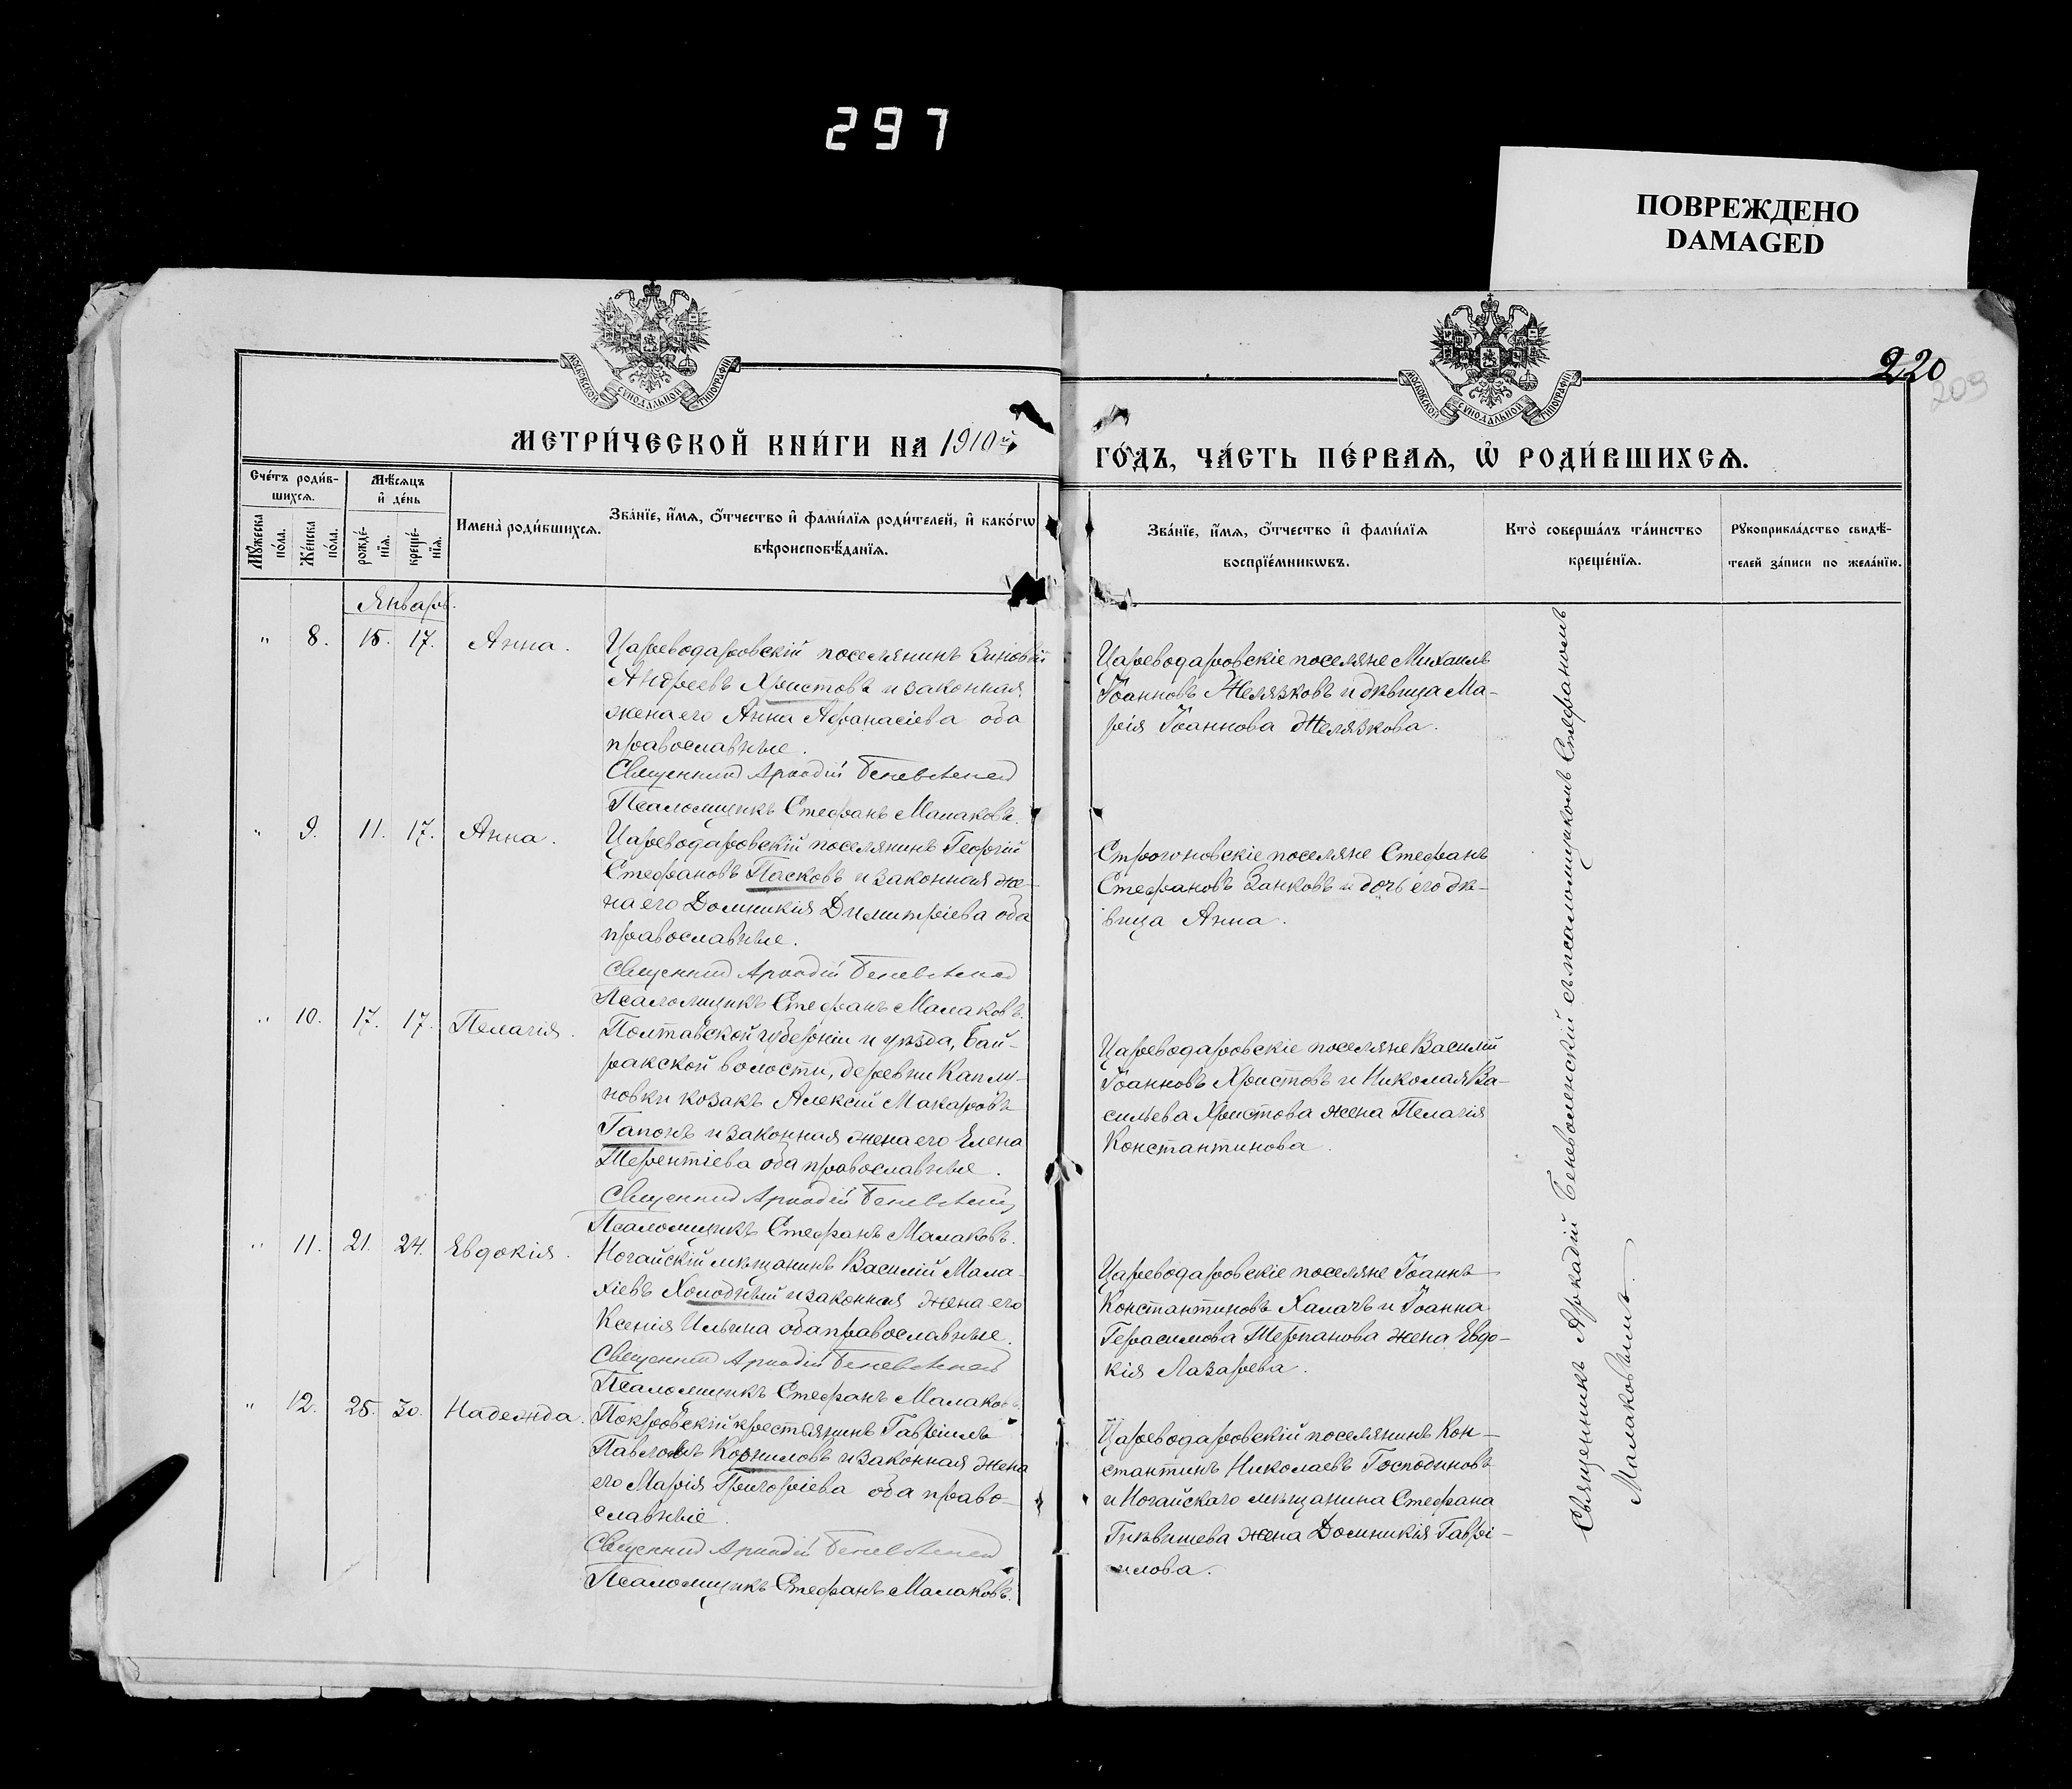 297
ПОВРЕЖДЕНО
DAMAGED
МОСКОВСКОЙ СѴНОДАЛЬНОЙ ТИПОГРАФІИ
МОСКОВСКОЙ СѴНОДАЛЬНОЙ ТИПОГРАФІИ
220
209
МЕТРИ́ЧЕСКОЙ КНИ́ГИ НА 1910й
ГО́ДЪ, ЧА́СТЬ ПЕ́РВАѦ, Ѡ҆ РОДИ́ВШИХСѦ.
Сче́тъ роди́в-
шихсѧ.
Мꙋ́жеска по́ла.
Же́нска по́ла.
Мѣ́сѧцъ
и҆ де́нь
рожде́-
нїѧ.
креще́-
нїѧ.
Имена̀ роди́вшихсѧ.
Зва́нїе, и҆́мѧ, ѻ҆́тчество и҆ фами́лїѧ роди́телей, и҆ како́гѡ
вѣроисповѣ́данїѧ.
Зва́нїе, и҆́мѧ, ѻ҆́тчество и҆ фами́лїѧ
воспрїе́мникѡвъ.
Кто̀ соверша́лъ та́инство
креще́нїѧ.
Рꙋкоприкла́дство свидѣ́-
телей за́писи по жела́нїю.
Январь.
" 8. 15. 17. Анна.
Цареводаровскій поселянинъ Зиновій
Андреевъ Христовъ и законная
жена его Анна Афанасіева оба
православные.
Священник Аркадій Беневоленскій
Псаломщикъ Стефанъ Малаковъ.
Цареводаровскіе поселяне Михаилъ
Іоанновъ Желязковъ и дѣвица Ма-
рія Іоаннова Желязкова.
" 9. 11. 17. Анна.
Цареводаровскій поселянинъ Георгій
Стефановъ Пасковъ и законная же-
на его Домникія Димитріева оба
православные.
Священник Аркадій Беневоленскій
Псаломщикъ Стефанъ Малаковъ.
Строгоновскіе поселяне Стефанъ
Стефановъ Занковъ и дочь его дѣ-
вица Анна.
" 10. 17. 17. Пелагія.
Полтавской губерніи и уѣзда, Бай-
ракской волости, деревни Каплу-
новки козакъ Алексій Макаровъ
Гапонъ и законная жена его Елена
Терентіева оба православные.
Священник Аркадій Беневоленскій
Псаломщикъ Стефанъ Малаковъ.
Цареводаровскіе поселяне Василій
Іоанновъ Христовъ и Николая Ва-
сильева Христова жена Пелагія
Константинова.
" 11. 21. 24. Евдокія.
Ногайскій мѣщанинъ Василій Мала-
хіевъ Холодный и законная жена его
Ксенія Ильина оба православные.
Священник Аркадій Беневоленскій
Псаломщикъ Стефанъ Малаковъ.
Цареводаровскіе поселяне Іоаннъ
Константиновъ Халачъ и Іоанна
Герасимова Терпанова жена Евдо-
кія Лазарева.
" 12. 25. 30. Надежда.
Покровскій крестьянинъ Гавріилъ
Павловъ Корниловъ и законная жена
его Марія Григоріева оба право-
славные.
Священник Аркадій Беневоленскій
Псаломщикъ Стефанъ Малаковъ.
Цареводаровскій поселянинъ Кон-
стантинъ Николаевъ Господиновъ
и Ногайскаго мѣщанина Стефана
жена Домникія Гаврі-
илова.
Священникъ Аркадій Беневоленскій съ псаломщикомъ Стефаномъ
Малаковымъ.